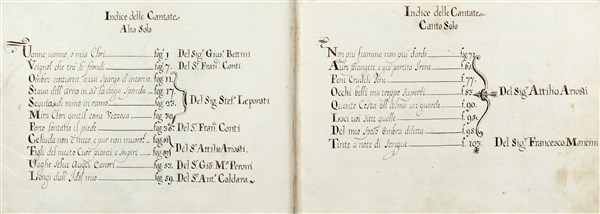 Indice delle Cantate
Alto Solo
Vanne, vanne, o mia Clori fog. 1. Del Sig.r Gius.e Bettini
Vagnol che trà le frondi fog. 7. Del S.r Fran.co Conti
Ombre notturne, a cui spargo d'intorno fog. 11.
Stava dell'Arno in sù la fiorita sponda fog. 17.
fog. 23. Del Sig.r Stef.o Leporati
Mira Clori gentil come Vezzosa fog. 30.
Porto fontatio il piede fog. 38. Del S.r Fran.co Conti
e pur non fog.
fog. 49. Del S.r Attilio Ariosti
Vaghe Selve Augel Canori fog. 52. Del S.r Gio. M.a Peroni
Lungi dall'Idol mio fog. 59. Del S.r Ant.o Caldara
Indice delle Cantate
Canto Solo
Non più fiamme, non più dardo f. 71.
Aure piangete, è già partita Irene f.
Pene Crudeli Pene f. 77.
Occhi belli ma troppo superbi f. 83. Del Sig.r Attilio Ariosti
Quanto Costa all'Alma un guardo f. 90.
Luci voi siete quelle f. 94.
Del mio Sposo Ombra dilecta f. 98.
Tinte à note di Sangue f. 107. Del Sig.r Francesco Mancini